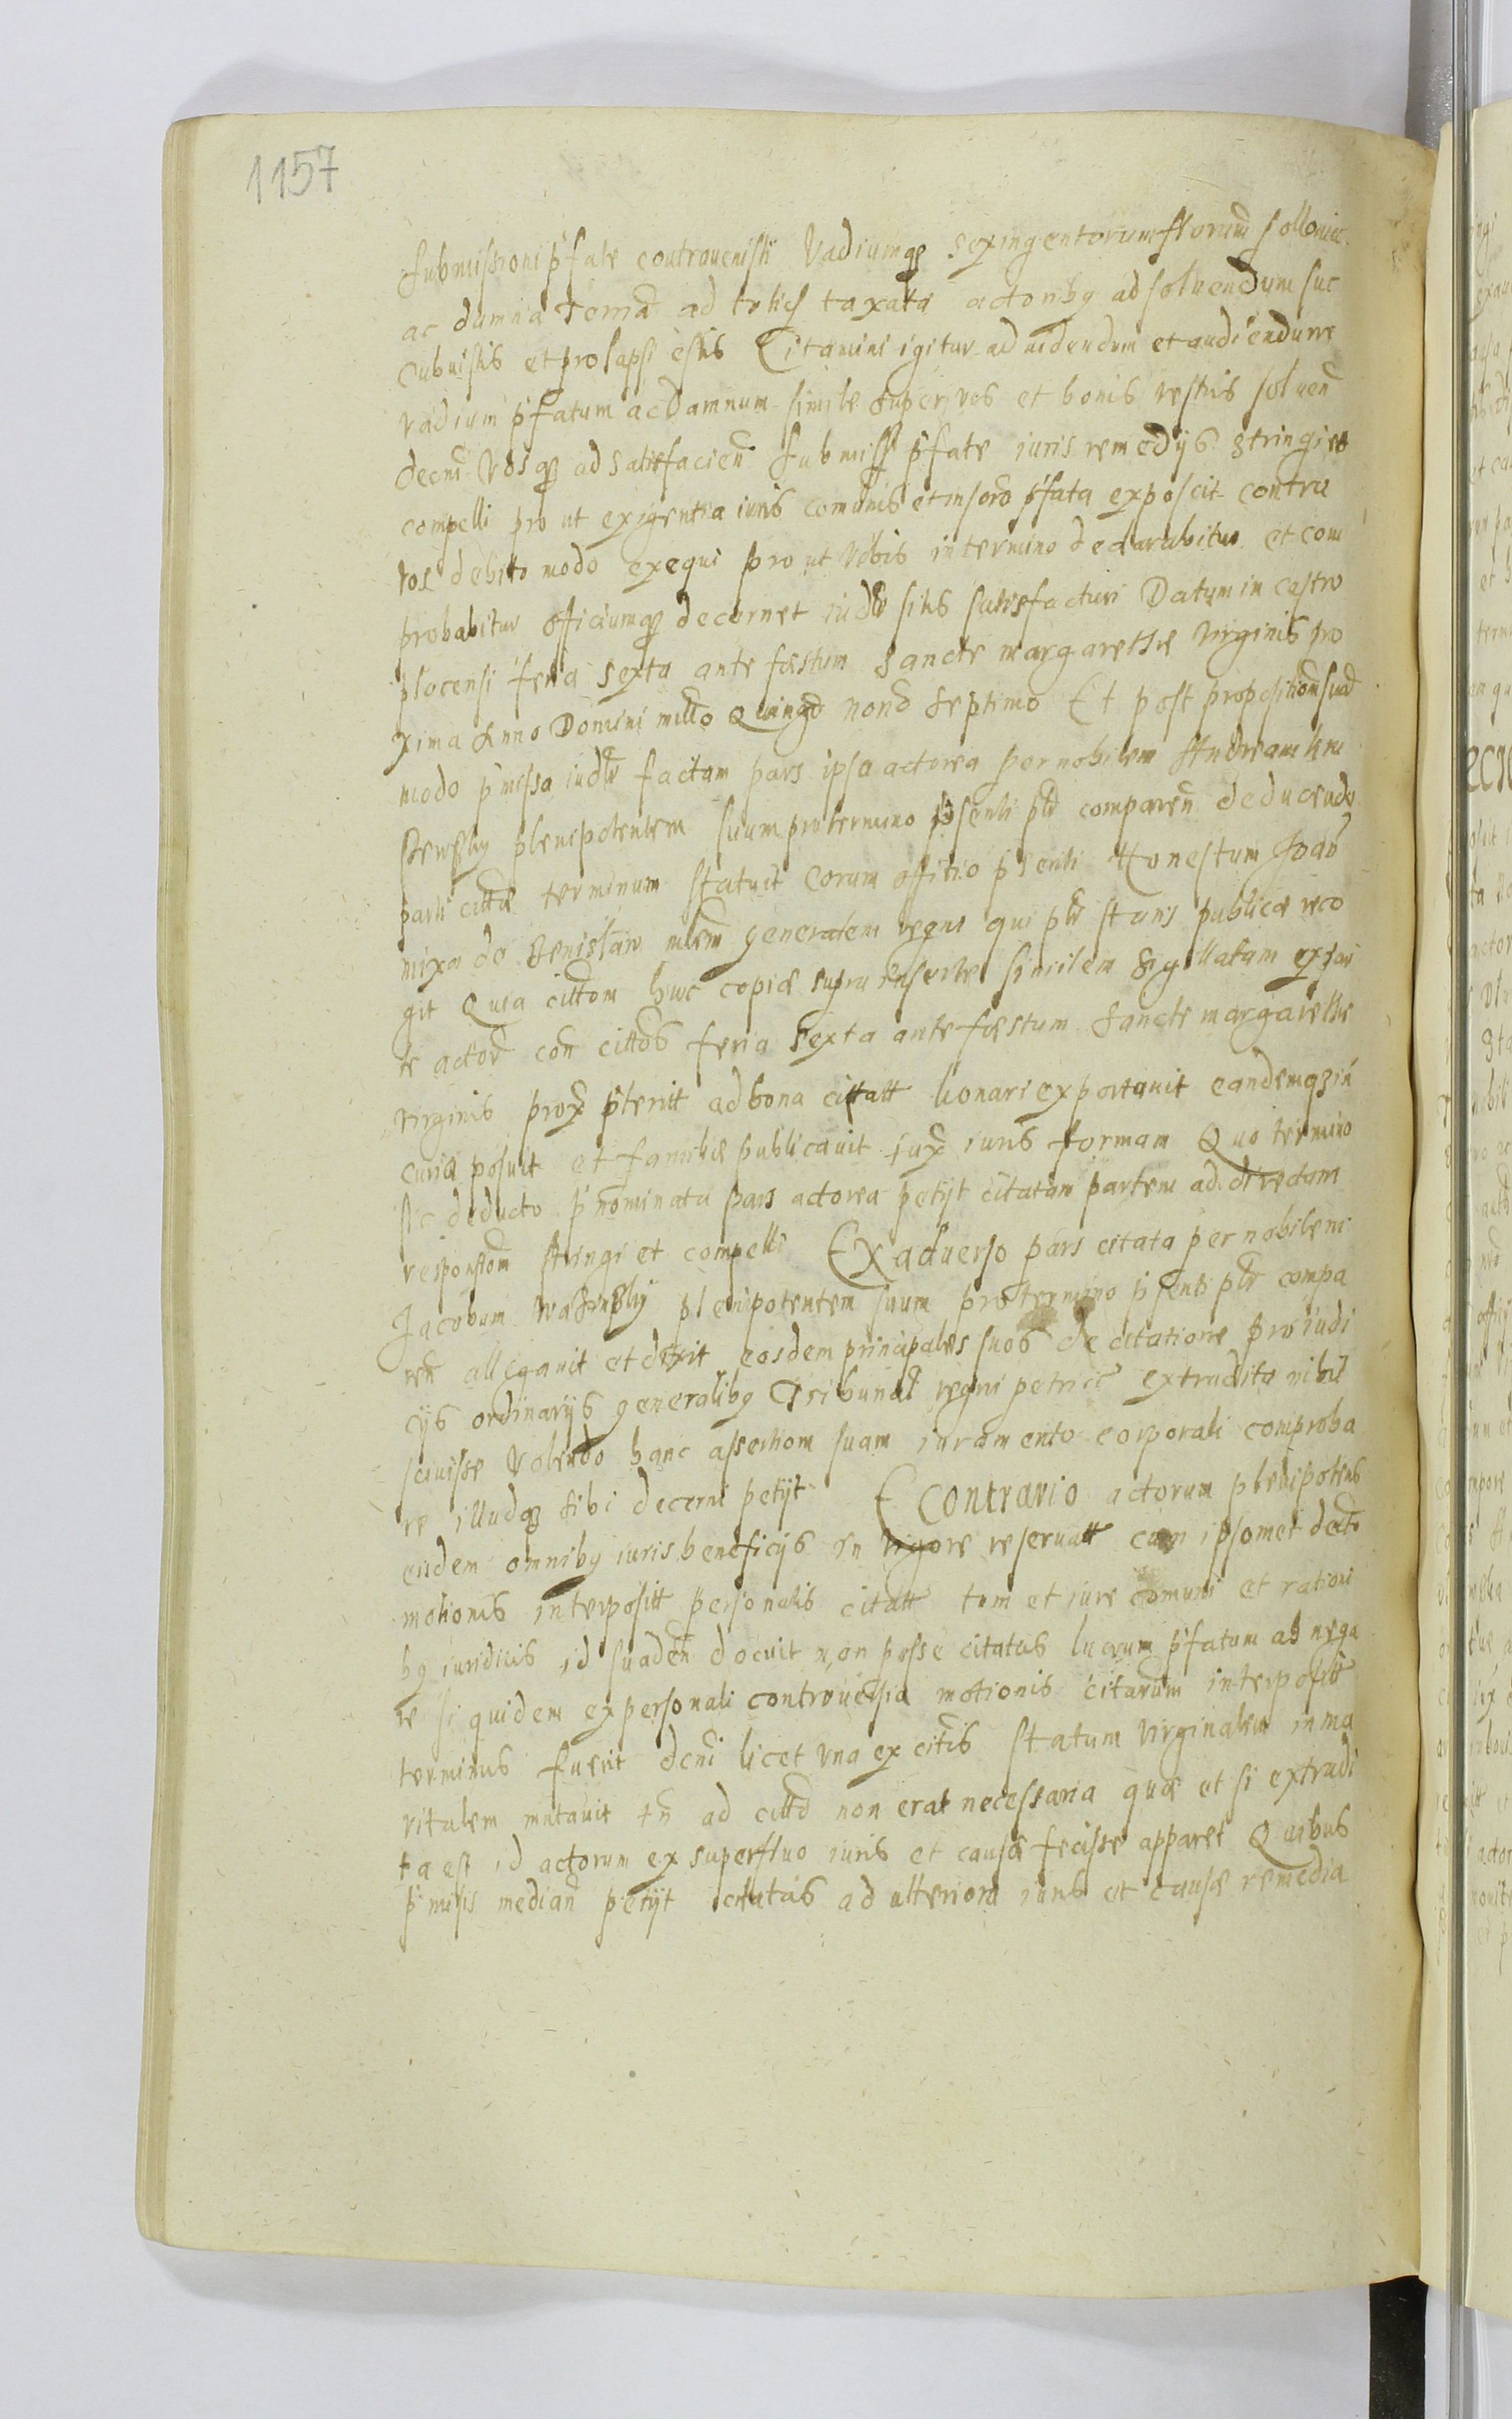 1157
submissioni pfate contravenisti Vadiumq sexingentorum florum pollonic
ac damna terrā ad totics taxata actoribq ad soluendum suc
cubuistis et prolapsi estis Citamini igitur ad uidendum et audiendum
vadium pfatum ac damnum simile super vos et bonis vestris soluen
decni Vosq ad satisfacien submiss pfate iuris remedijs stringi et
compelli pro ut exigentia iuris comunis et inscro pfata exposcit contra
vos debito modo exequi pro ut vobis in termino declarabitur et com
probabitur officiumq decernet iudr sitis satisfacturi Datum in castro
plocensi feria sexta ante festum Sancte margarethe virginis pro
xima Anno Domini millo Quingo nono septimo Et post propositiom suad
modo pmissa iudr factam pars ipsa actorea per nobilem Andream
plenipotentem suum pro termino psenti ptr comparen deducendo
parti citte terminum statuit coram offitio psenti Honestum Joan
nixa de Benislaw mlem generalem regni qui ptr stans publice reco
git Quia cittom huc copie supra inserte similem sigillatam ex par
te actor con cittos feria sexta ante festum Sancte margarethe
virginis prox pterit ad bona citatt lionari exportauit eandemq in
curia posuit et familie publicauit iux iuris formam Quo termino
sic deducto pnominata pars actorea petijt citatam partem ad directam
responsiom stringi et compelli Ex aduerso pars citata per nobilem
Jacobum plenipotentem suum pro termino psenti ptr compa
ren allegauit et dixit eosdem principales suos de citatione pro iudi
cijs ordinarijs generalibq Tribunal regni petricc extradita nihil
sciuisse Volendo hanc assertiom suam iuramento corporali comproba
re illudq sibi decerni petijt E Contrario actorum plenipotens
eisdem omnibq iuris beneficijs in vigore reseruatt cum ipsomet decto
motionis interpositt personalis citatt tom et iure comuni et rationi
bq iuridicis id suaden docuit non posse citatus lucrum pfatum ab nega
re si quidem ex personali controuersia motionis citarum interpositt
terminus fuerit dcni licet vna ex citis statum virginalem in ma
ritalem mutauit tn ad cittd non erat necessaria que et si extradi
ta est id actorum ex superfluo iuris et cause fecisse apparet Quibus
pmissis median petijt citatus ad ulteriora iuris et cause remedia